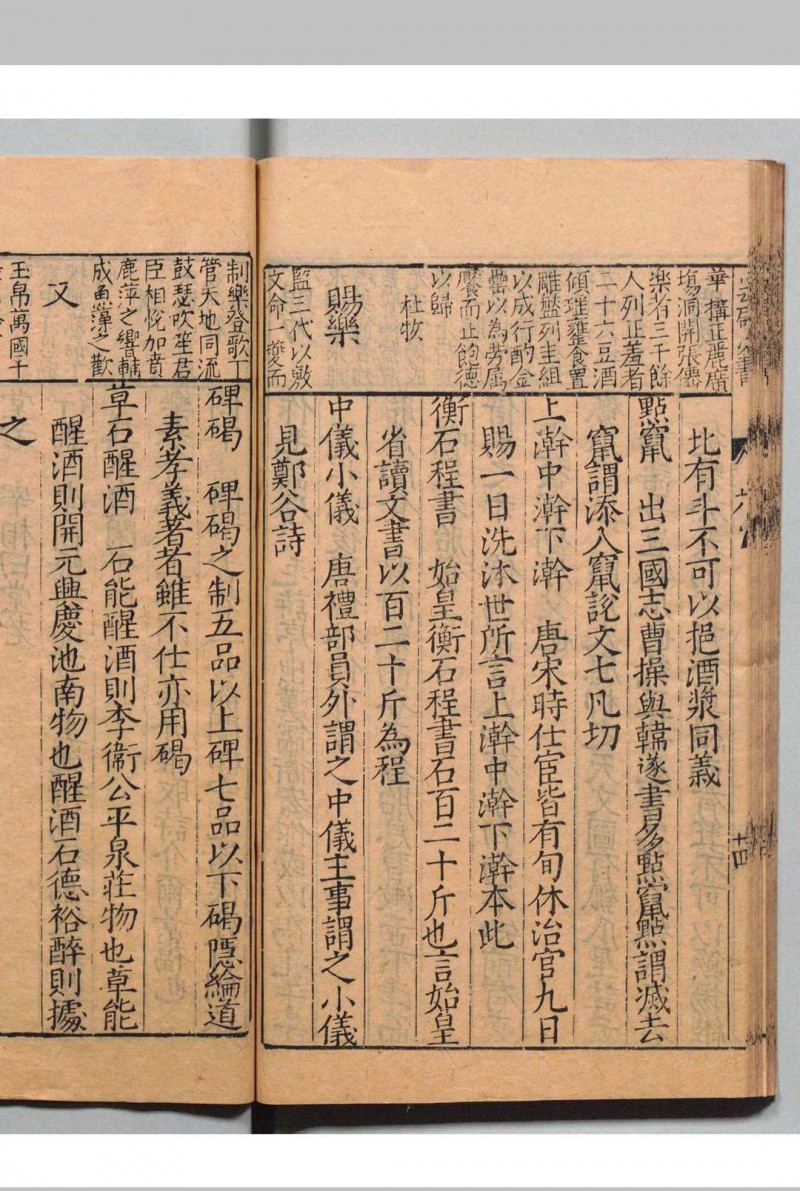 華構正麂廣
塲洞開張儒
楽者三千餘
人列正羞者
二十六豆酒
傾璀甕食置
雕盤列圭組
以成行酌金
罍以為劳属
饜而正飽德
以歸
杜牧
賜樂
監三代以敷
文命一䕫而
北有斗不可以挹酒漿同義
點竄　出三國志曹操與韓遂書多點竄點謂滅去
竄謂添入竄說文七凡切
上澣中澣下澣　唐宋時仕宦皆有旬休治官九日
賜一日洗沐世所言上澣中澣下澣本此
衡石程書　始皇衡石程書石百二十斤也言始皇
省讀文書以百二十斤為程
中儀小儀　唐禮部員外謂之中儀主事謂之小儀
見鄭谷詩
制樂登歌丁
管天地同流
鼓瑟吹笙君
臣相悅加賁
鹿萍之響輔
成魚藻之歡
又
玉帛萬國干
碑碣　碑碣之制五品以上碑七品以下碣隱綸道
素孝義著者雖不仕亦用碣
草石醒酒　石能醒酒則李衛公平泉莊物也草能
醒酒則開元興慶池南物也醒酒石德裕醉則據
之
十四